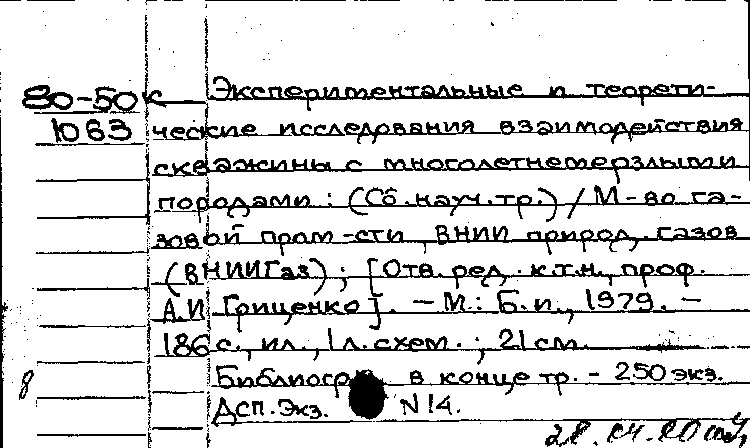 80-50к Экспериментальные и теорети-
1063 ческие исследования взаимодействия
скважины с многолетнемерзлыми
породами : (Сб. науч. тр.) / М-во га-
зовой пром-сти, ВНИИ природ. газов
(ВНИИГаз) ; [Отв. ред. к.т.н., проф.
А.И. Гриценко]. - М.: Б.и., 1979. -
186 с., ил., 1 л. схем. ; 21 см.
8 Библиогр. в конце тр. - 250 экз.
Дсп. Экз. N 14.